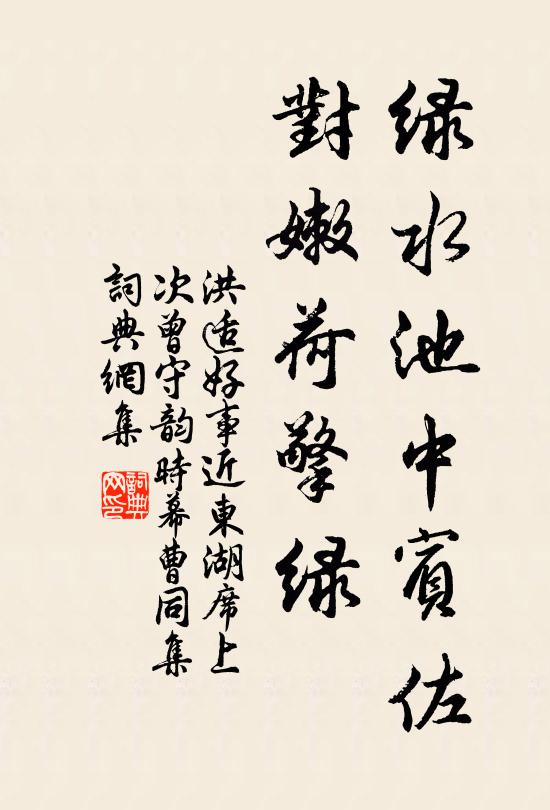 绿水池中賓佐
對嫩荷擎绿
洪适好事近東湖席上
次曾守韵時幕曹同集
詞典網集
詞典网印